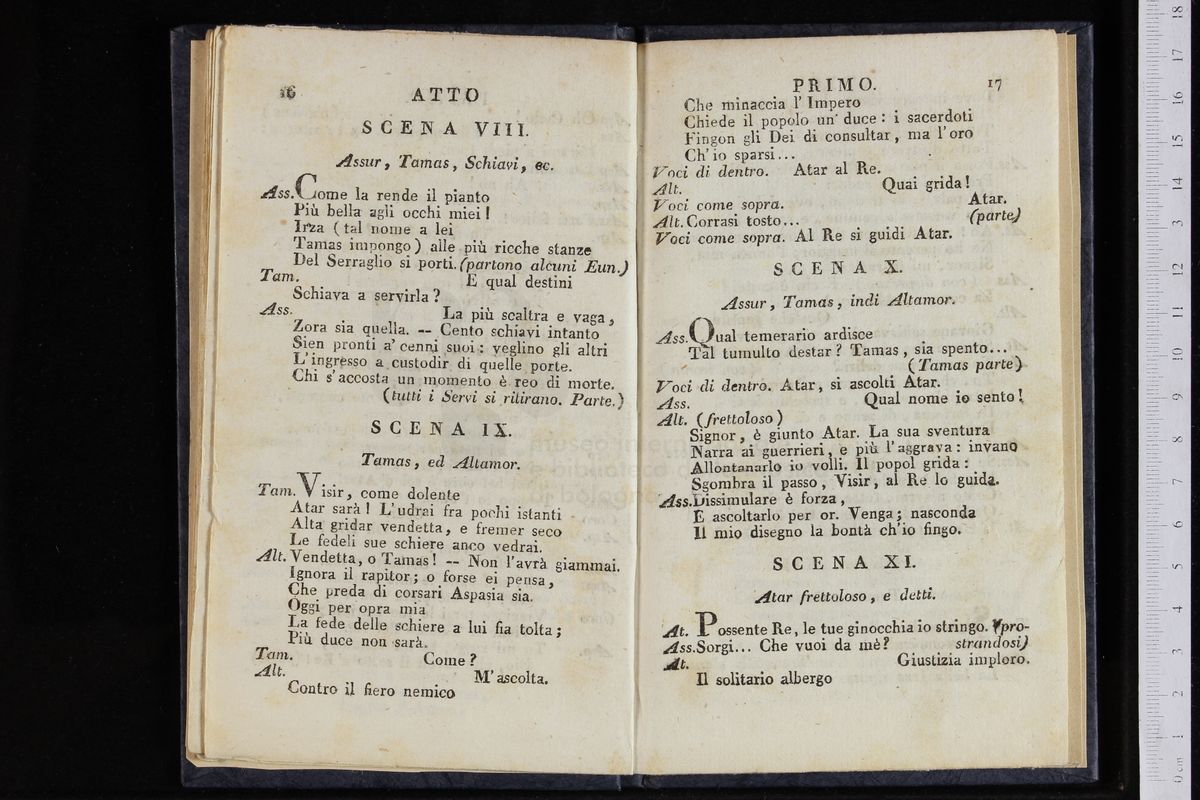 16 ATTO
SCENA VIII.
Assur, Tamas, Schiavi, ec.
Ass. Come la rende il pianto
Più bella agli occhi miei!
Irza (tal nome a lei
Tamas impongo) alle più ricche stanze
Del Serraglio si porti. (partono alcuni Eun.)
Tam. E qual destini
Schiava a servirla?
Ass. La più scaltra e vaga,
Zora sia quella. -- Cento schiavi intanto
Sien pronti a' cenni suoi: veglino gli altri
L'ingresso a custodir di quelle porte.
Chi s'accosta un momento è reo di morte.
(tutti i Servi si ritirano. Parte.)
SCENA IX.
Tamas, ed Altamor.
Tam. Visir, come dolente
Atar sarà! L'udrai fra pochi istanti
Alta gridar vendetta, e fremer seco
Le fedeli sue schiere anco vedrai.
Alt. Vendetta, o Tamas! -- Non l'avrà giammai.
Ignora il rapitor; o forse ei pensa,
Che preda di corsari Aspasia sia.
Oggi per opra mia
La fede delle schiere a lui fia tolta;
Più duce non sarà.
Tam. Come?
Alt. M'ascolta.
Contro il fiero nemico
PRIMO. 17
Che minaccia l'Impero
Chiede il popolo un' duce: i sacerdoti
Fingon gli Dei di consultar, ma l'oro
Ch'io sparsi...
Voci di dentro. Atar al Re.
Alt. Quai grida!
Voci come sopra. Atar.
Alt. Corrasi tosto... (parte)
Voci come sopra. Al Re si guidi Atar.
SCENA X.
Assur, Tamas, indi Altamor.
Ass. Qual temerario ardisce
Tal tumulto destar? Tamas, sia spento...
(Tamas parte)
Voci di dentro. Atar, si ascolti Atar.
Ass. Qual nome io sento!
Alt. (frettoloso)
Signor, è giunto Atar. La sua sventura
Narra ai guerrieri, e più l'aggrava: invano
Allontanarlo io volli. Il popol grida:
Sgombra il passo, Visir, al Re lo guida.
Ass. Dissimulare è forza,
E ascoltarlo per or. Venga; nasconda
Il mio disegno la bontà ch'io fingo.
SCENA XI.
Atar frettoloso, e detti.
At. Possente Re, le tue ginocchia io stringo. (pro-
Ass. Sorgi... Che vuoi da mè? strandosi)
At. Giustizia imploro.
Il solitario albergo